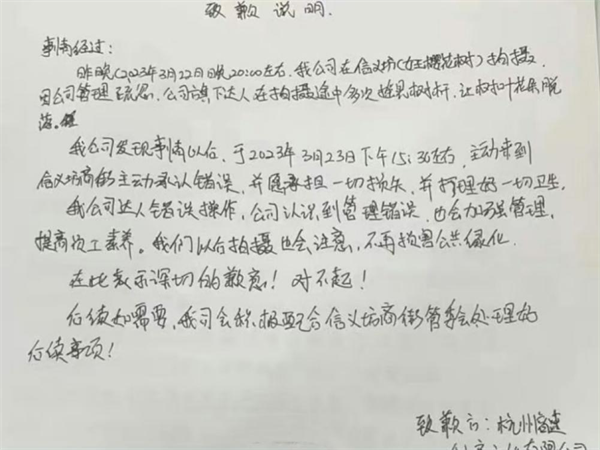 致歉说明.
事情经过:
昨晚(2023年3月22日晚20:00左右,我公司在信义坊(女王樱花树)拍摄,
因公司管理疏忽.公司旗下达人在拍摄途中多次摇晃树杆,让树叶花朵脱
落.
我公司发现事情以后,于2023年3月23日下午15:30左右,主动来到
信义坊商街主动承认错误,并愿承担一切损失,并打理好一切卫生.
我公司达人错误操作,公司认识到管理错误,也会加强管理,
提高员工素养。我们以后拍摄也会注意,不再损害公共绿化.
在此表示深切的歉意!对不起!
后续如需要,我司会积极配合信义坊商街管委会处理好
后续事项!
致歉方:杭州
有限公司